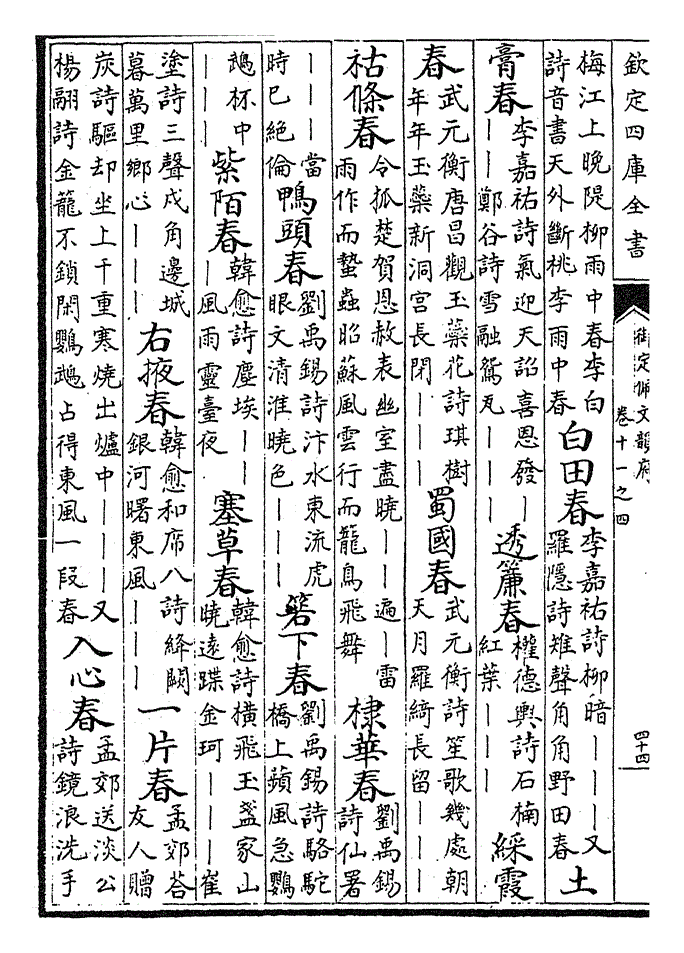 欽定四庫全書
御定佩文韻府
卷十一之四
四十四
梅江上晚隄柳雨中春李白
詩音書天外斷桃李雨中春
白田春
李嘉祐詩柳暗｜｜｜又
羅隱詩雉聲角角野田春
土
膏春
李嘉祐詩氣迎天詔喜恩發｜
｜｜鄭谷詩雪融鴛瓦｜｜｜
透簾春
權德輿詩石楠
紅葉｜｜｜
綵霞
春
武元衡唐昌觀玉蘂花詩琪樹
年年玉蘂新洞宮長閉｜｜｜
蜀國春
武元衡詩笙歌幾處朝
天月羅綺長留｜｜｜
祜條春
令狐楚賀恩赦表幽室盡曉｜｜遍｜雷
雨作而蟄蟲昭蘇風雲行而龍鳥飛舞
棣華春
劉禹錫
詩仙署
｜｜｜當
時已絶倫
鴨頭春
劉禹錫詩汴水東流虎
眼文清淮曉色｜｜｜
箬下春
劉禹錫詩駱駝
橋上蘋風急鸚
鵡杯中
｜｜｜
紫陌春
韓愈詩塵埃｜｜
｜風雨靈臺夜
塞草春
韓愈詩橫飛玉盞家山
曉遠蹀金珂｜｜｜崔
塗詩三聲戍角邊城
暮萬里鄉心｜｜｜
右掖春
韓愈和席八詩絳闕
銀河曙東風｜｜｜
一片春
孟郊荅
友人贈
炭詩驅却坐上千重寒燒出爐中｜｜｜又
楊翮詩金籠不鎖閑鸚鵡占得東風一段春
入心春
孟郊送淡公
詩鏡浪洗手